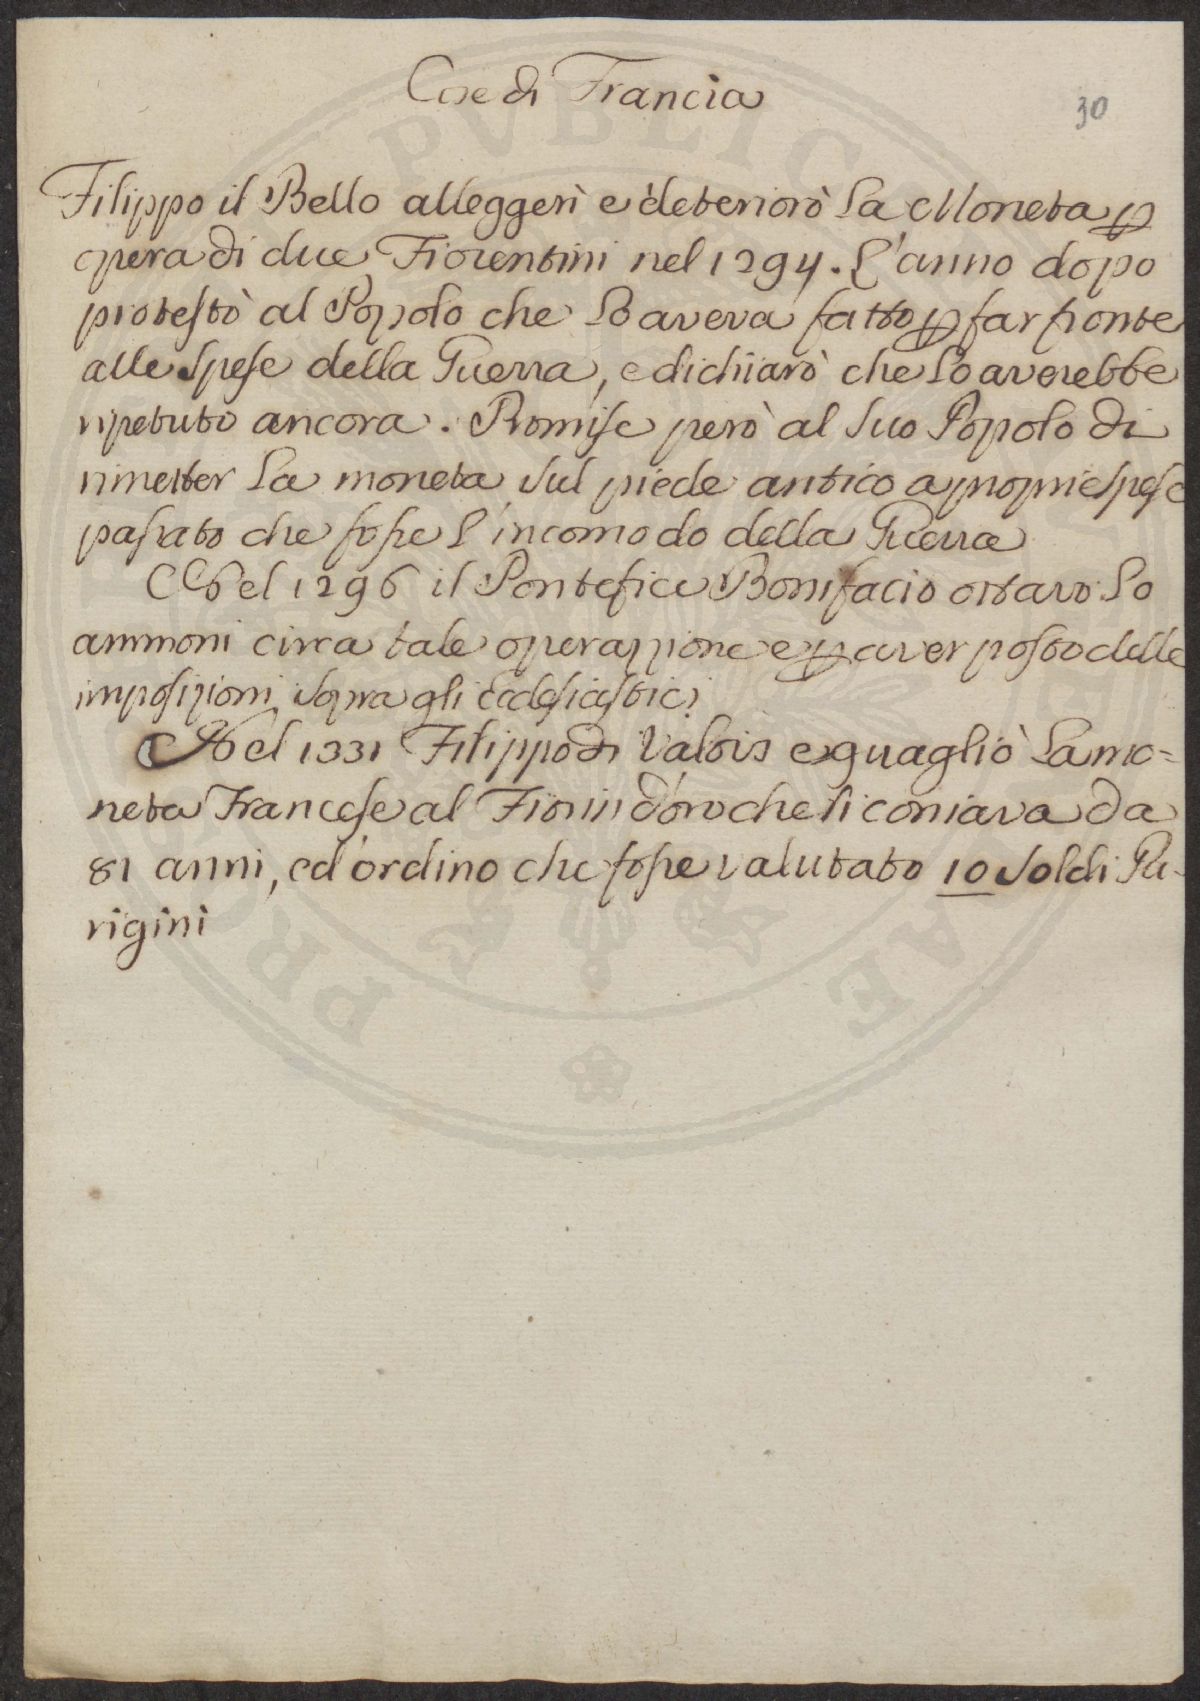 Cose di Francia
30
Filippo il Bello alleggerì e deteriorò la Moneta p
opera di due Fiorentini nel 1294. L'anno dopo
protestò al Popolo che lo aveva fatto p far fronte
alle spese della Guerra, e dichiarò che lo averebbe
ripetuto ancora. Promise però al suo Popolo di
rimetter la moneta sul piede antico a proprie spese
passato che fosse l'incomodo della Guerra
Nel 1296 il Pontefice Bonifacio ottavo lo
ammoni circa tale operazione e p aver posto delle
imposizioni sopra gli Ecclesiastici
Nel 1331 Filippo di Valois eguagliò la mo=
neta Francese al Fiorin d'oro che si coniava da
81 anni, ed ordino che fosse valutato 10 soldi Pa-
rigini
PVBLICAE
PR